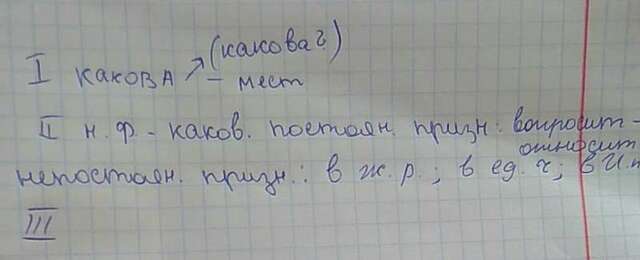 (какова?)
I какова - мест
II н.ф. - каков. постоян. призн: вопросит-
относит
непостоян. призн.: в ж.р.; в ед.ч; в И.п
III